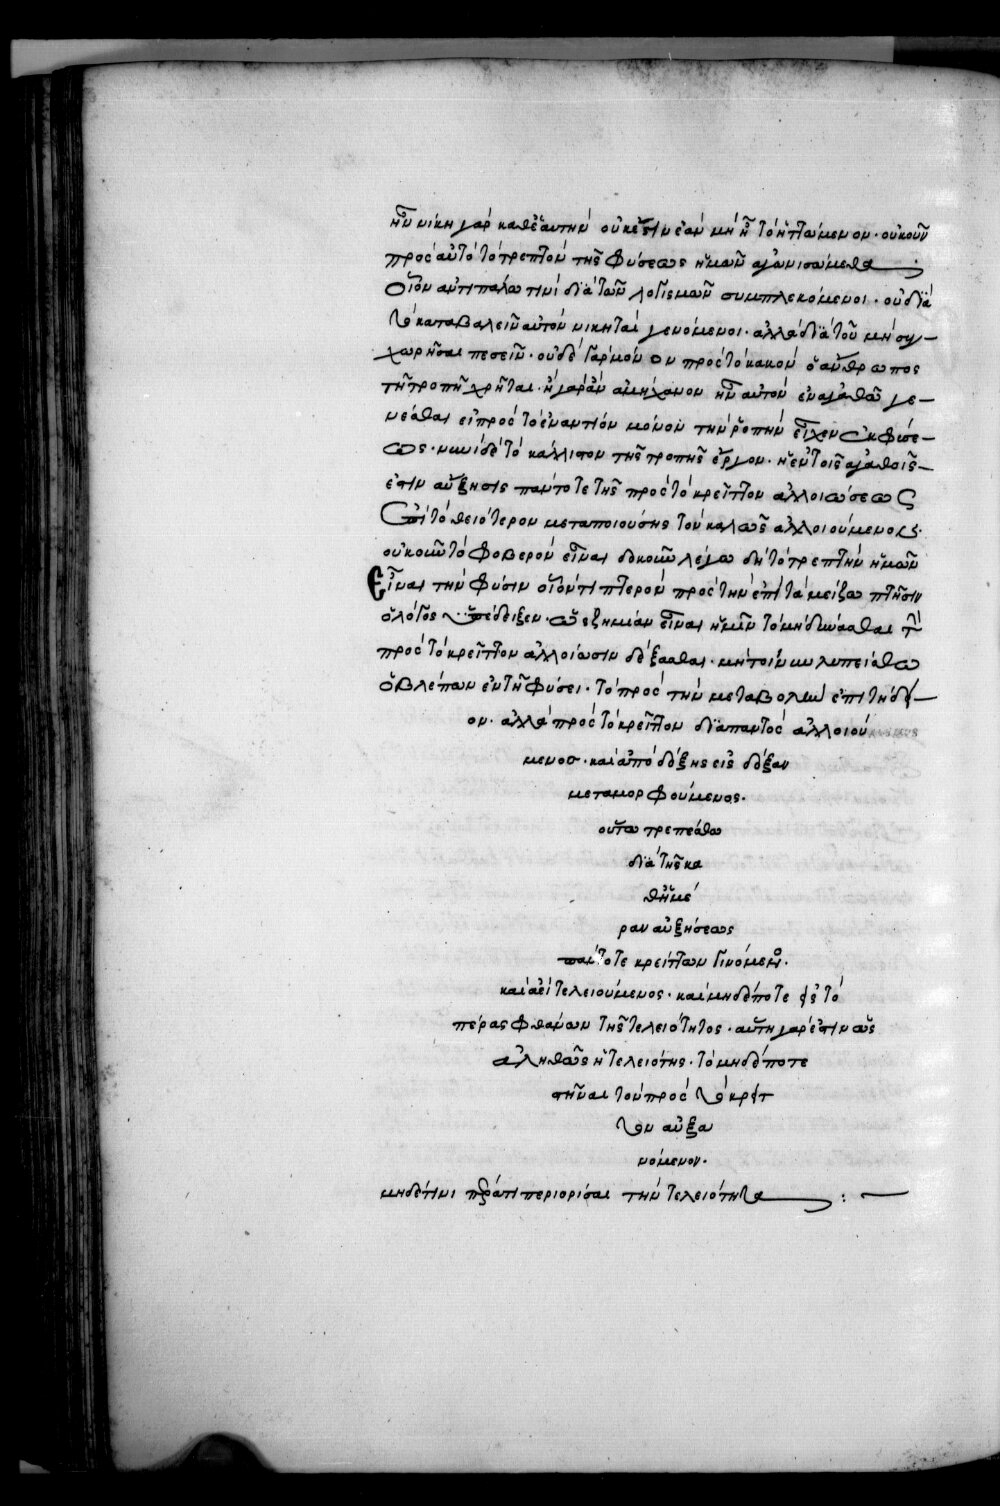 ἦν νίκη γὰρ καθ' ἑαυτὴν οὐκ ἔστιν ἐὰν μὴ ᾖ τὸ ἡττώμενον· οὐκοῦν
πρὸς αὐτὸ τὸ τρεπτὸν τῆς φύσεως ἡμῶν ἀγωνισώμεθα
οἷον ἀντιπάλω τινὶ διὰ τῶν λογισμῶν συμπλεκόμενοι· οὐ διὰ
τὸ καταβαλεῖν αὐτὸν νικηταὶ γενόμενοι· ἀλλὰ διὰ τοῦ μὴ συγ–
χωρῆσαι πεσεῖν· οὐδὲ γὰρ μόνον πρὸς τὸ κακὸν ὁ ἄνθρωπος
τῆ τροπῆ χρῆται· ἦ γὰρ ἂν ἀμήχανον ἦν αὐτὸν ἐν ἀγαθῶ γε–
νέσθαι εἰ πρὸς τὸ ἐναντίον μόνον τὴν ῥοπὴν εἶχεν ἐκ φύσε–
ως· νυνὶ δὲ τὸ κάλλιστον τῆς τροπῆς ἔργον· ἡ ἐν τοῖς ἀγαθοῖς–
ἐστιν αὔξησις πάντοτε τῆς πρὸς τὸ κρεῖττον ἀλλοιώσεως
ἐπὶ τὸ θειότερον μεταποιούσης τὸν καλῶς ἀλλοιούμενον·
οὐκοῦν τὸ φοβερὸν εἶναι δοκοῦν λέγω δὴ τὸ τρεπτὴν ἡμῶν
εἶναι τὴν φύσιν οἷόν τι πτερὸν πρὸς τὴν ἐπὶ τὰ μείζω πτῆσιν
ὁ λόγος ὑπέδειξεν· ὡς ζημίαν εἶναι ἡμῖν τὸ μὴ δύνασθαι τὴν
πρὸς τὸ κρεῖττον ἀλλοίωσιν δέξασθαι· μὴ τοίνυν λυπείσθω
ὁ βλέπων ἐν τῆ φύσει· τὸ πρὸς τὴν μεταβολὴν ἐπιτήδει–
ον· ἀλλὰ πρὸς τὸ κρεῖττον διαπαντὸς ἀλλοιού
μενος· καὶ ἀπὸ δόξης εἰς δόξαν
μεταμορφούμενος·
οὕτω τρεπέσθω
διὰ τῆς κα
θ' ἡμέ
ραν αὐξήσεως
πάντοτε κρείττων γινόμενος·
καὶ ἀεὶ τελειούμενος· καὶ μηδέποτε εἰς τὸ
πέρας φθάνων τῆς τελειότητος· αὕτη γάρ ἐστιν ὡς
ἀληθῶς ἡ τελειότης· τὸ μηδέποτε
στῆναι τὸν πρὸς τὸ κρεῖτ
τον αὐξα
νόμενον·
μηδέ τινι πέρατι περιορίσαι τὴν τελειότητα : –